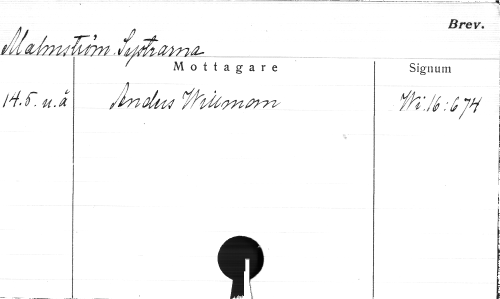 Brev.
Malmström. Systrarna
Mottagare
Signum
14.5. u.å
Anders Willman
Wi.16:674